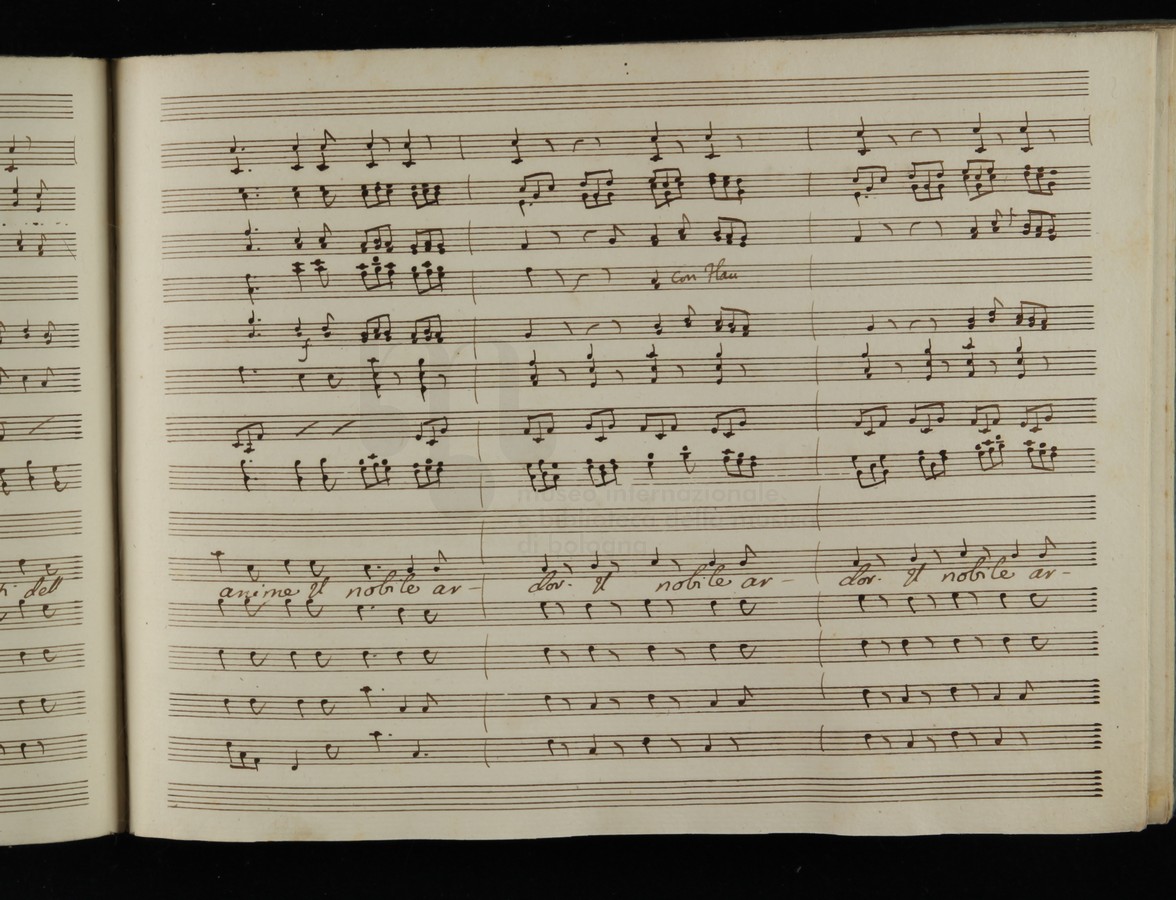 f
con Flau
museo internazionale
e biblioteca della musica
di bologna
dell
anime Il nobile ar- dor. Il nobile ar- dor. Il nobile ar-